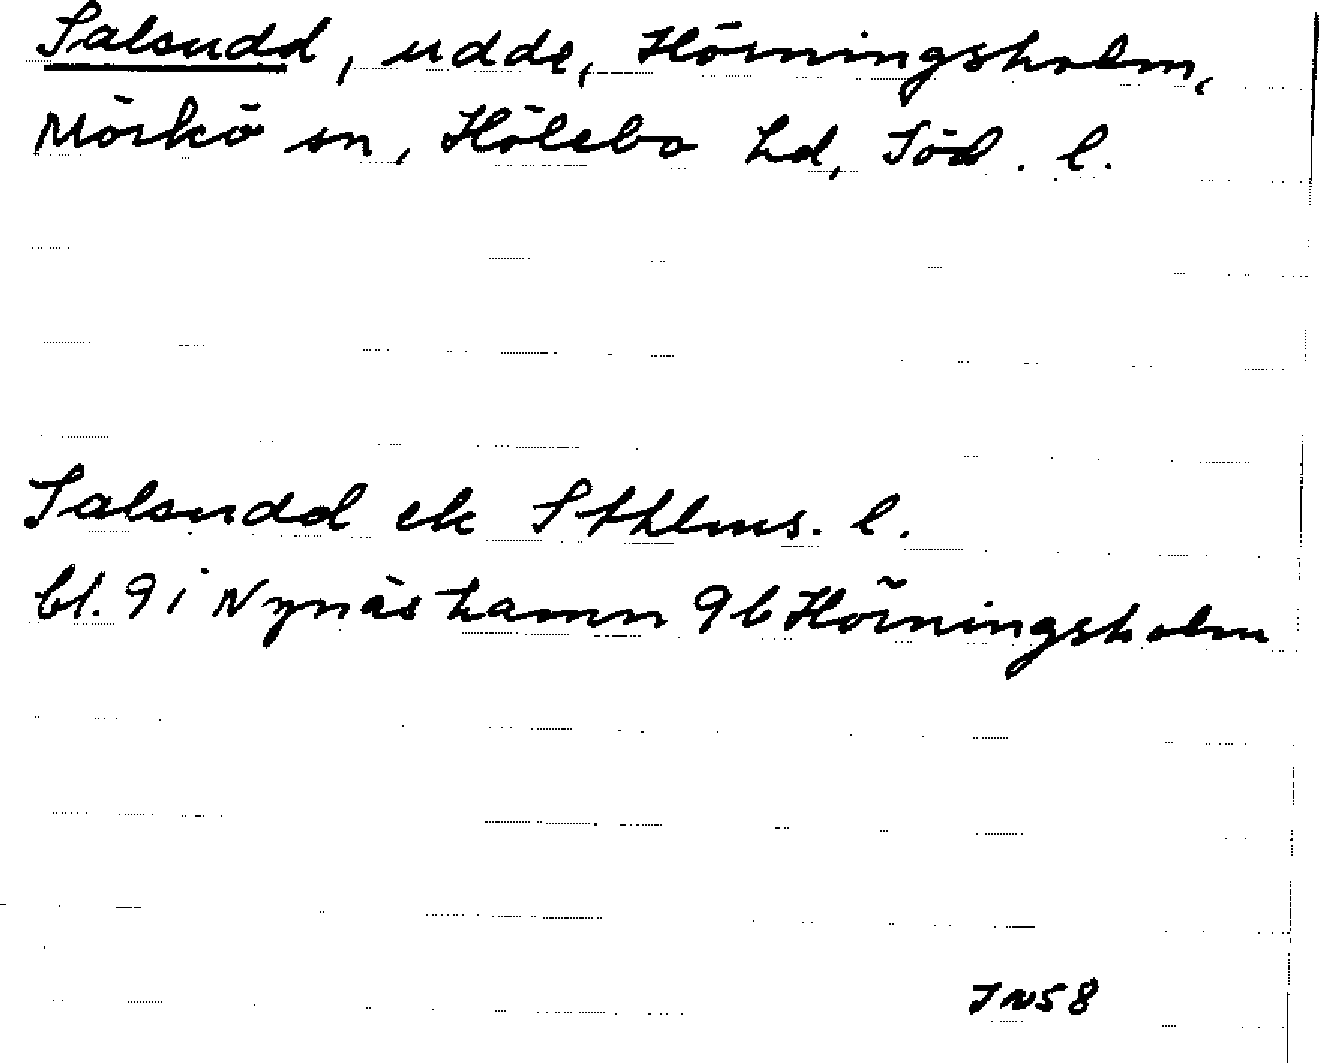 Salsudd, udde, Hörningsholm,
Mörkö sn, Hölebo hd, Söd. l.
Salsudd ek Sthlms. l.
bl. 9 i Nynäshamn 9b Hörningsholm
JN58